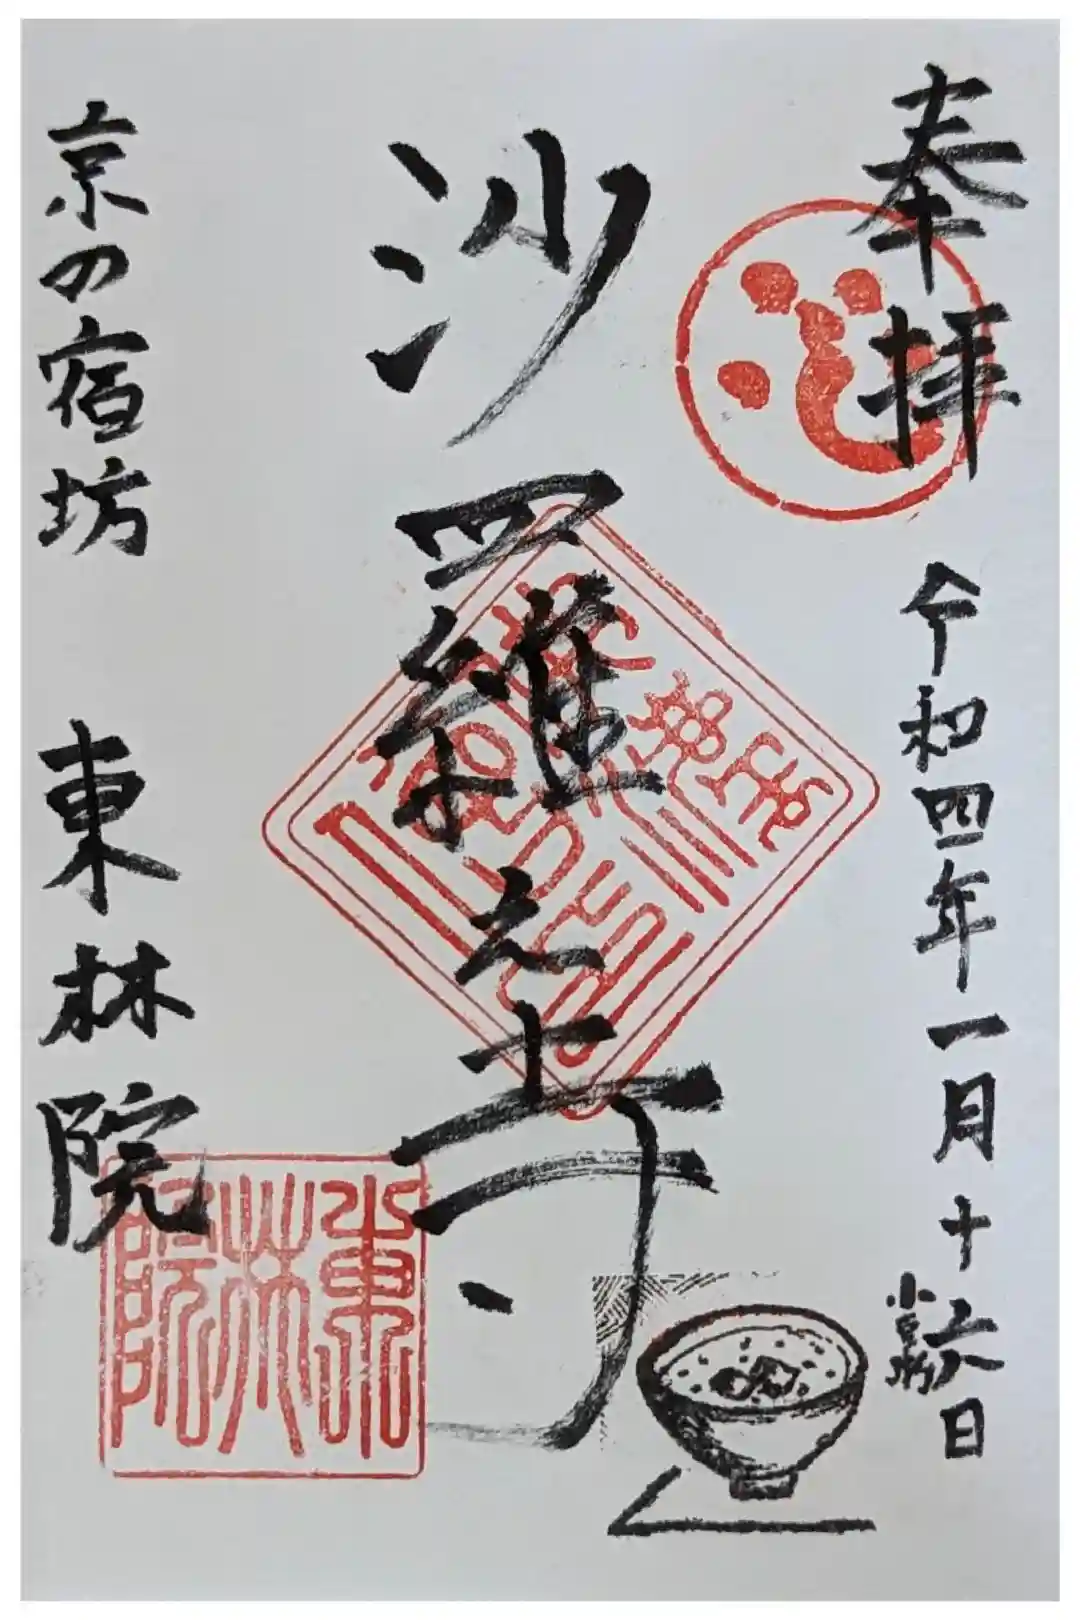 奉拝
令和四年一月十六日
小豆粥
沙羅之寺
京の宿坊 東林院
心
東林院